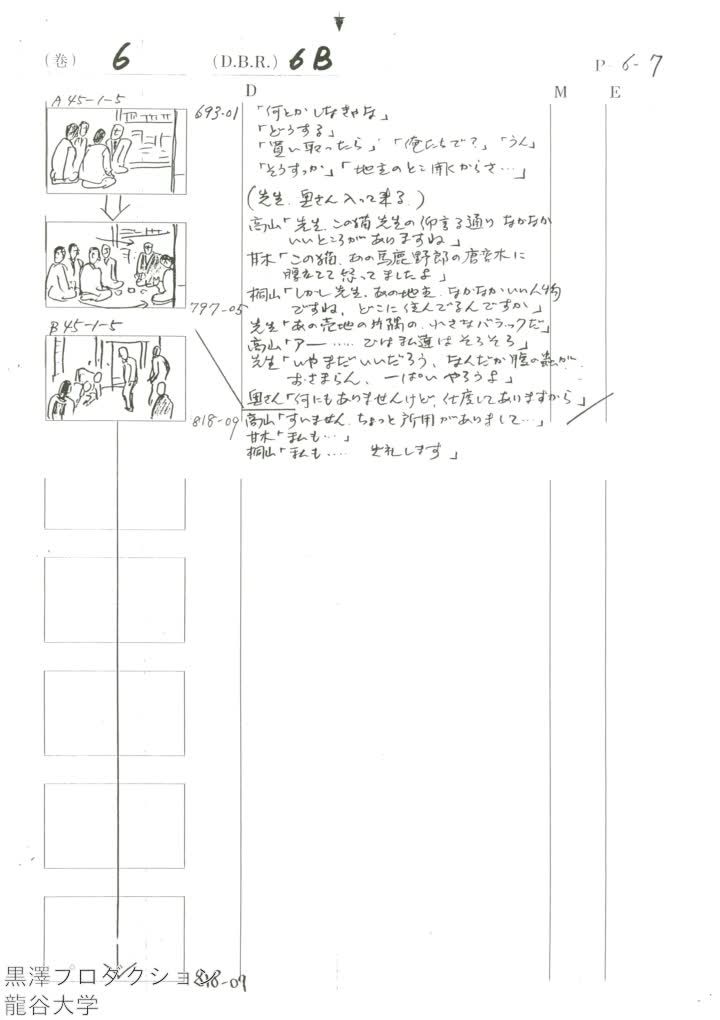 (巻) 6 (D.B.R.) 6B P-6-7
D M E
A 45-1-5
693-01
「何とかしなきゃな」
「どうする」
「買い取ったら」「俺たちで?」「うん」
「そうすっか」「地主のとこ聞くからさ…」
(先生、奥さん入って来る)
高山「先生、この猫先生の仰言る通りなかなか
いいところがありますね」
甘木「この猫、あの馬鹿野郎の
腹立てて怒ってましたよ」
桐山「しかし先生、あの地主、なかなかいい人物
ですね、どこに住んでるんですか」
797-05
先生「あの売地の片隅の、小さなバラックだ」
B 45-1-5
高山「アー…… では私達はそろそろ」
先生「いやまだいいだろう、なんだか腹の虫が
おさまらん、一ぱいやろうよ」
奥さん「何にもありませんけど、仕度してありますから」
818-09
高山「すいません、ちょっと所用がありまして…」
甘木「私も…」
桐山「私も…… 失礼します」
818-09
黒澤プロダクション
龍谷大学